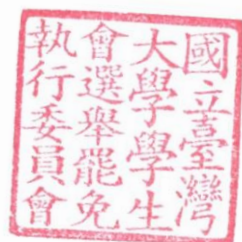 國立臺灣
大學學生
會選舉罷免
執行委員會